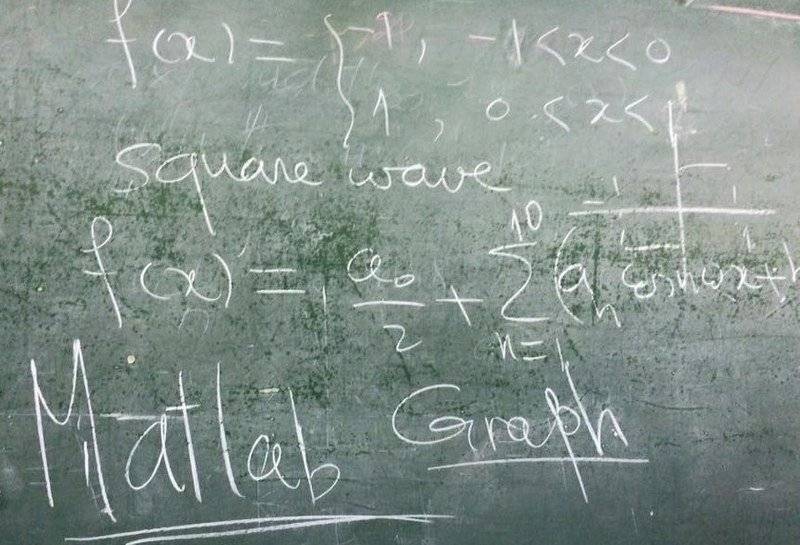 f(x) = { -1, -1 < x < 0
1, 0 < x < 1
square wave
-1 1
f(x) = a₀/2 + Σ_{n=1}^{10} (aₙ cos nωx + b
Matlab Graph